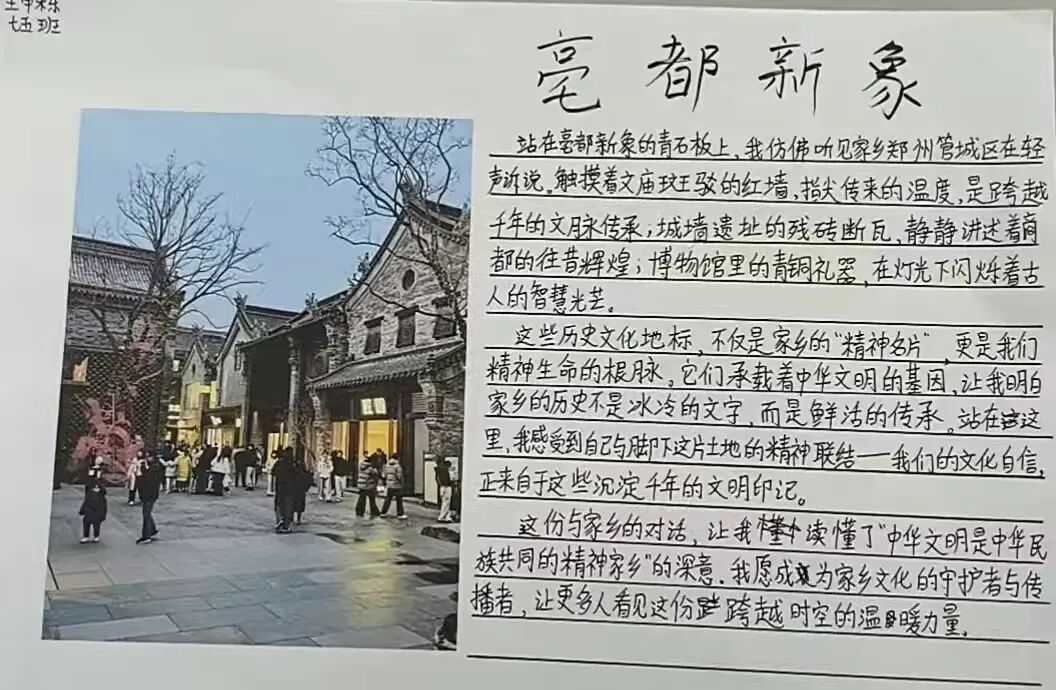 七五班
亳都新象
站在亳都新象的青石板上,我仿佛听见家乡郑州管城区在轻
声诉说。触摸着文庙斑驳的红墙,指尖传来的温度,是跨越
千年的文脉传承;城墙遗址的残砖断瓦,静静讲述着商
都的往昔辉煌;博物馆里的青铜礼器,在灯光下闪烁着古
人的智慧光芒。
这些历史文化地标,不仅是家乡的“精神名片”,更是我们
精神生命的根脉。它们承载着中华文明的基因,让我明白
家乡的历史不是冰冷的文字,而是鲜活的传承。站在这
里,我感受到自己与脚下这片土地的精神联结——我们的文化自信,
正来自于这些沉淀千年的文明印记。
这份与家乡的对话,让我读懂了“中华文明是中华民
族共同的精神家乡”的深意。我愿成为家乡文化的守护者与传
播者,让更多人看见这份跨越时空的温暖力量。